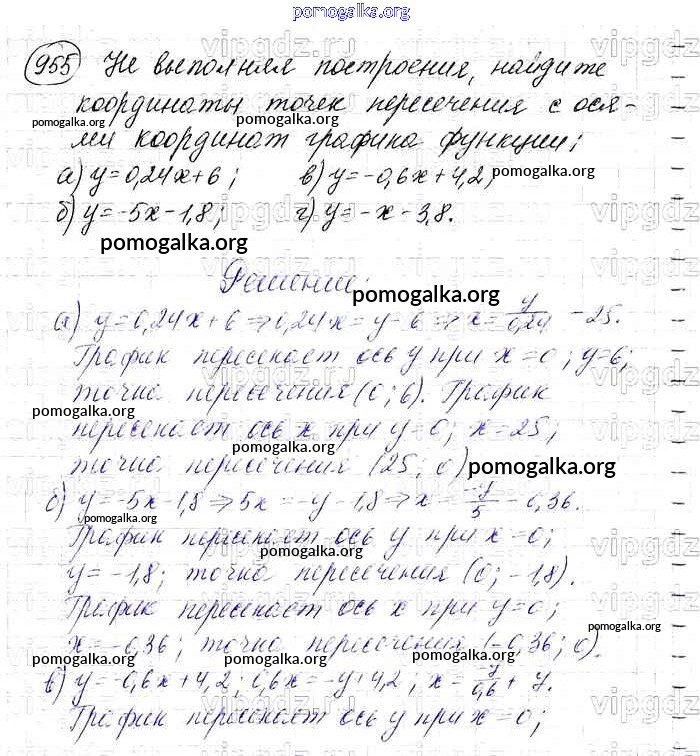 pomogalka.org
955 Не выполняя построения, найдите
координаты точек пересечения с ося-
ми координат графика функции;
а) y=0,24x+6; в) y=-0,6x+4,2;
б) y=-5x-1,8; г) y=-x-3,8.
pomogalka.org
Решение:
pomogalka.org
а) y=0,24x+6 ⇒ 0,24x=y-6 ⇒ x=y/0,24 - 25.
График пересекает ось y при x=0; y=6;
точка пересечения (0; 6). График
пересекает ось x при y=0; x=25;
точка пересечения (25; 0)
pomogalka.org
б) y=-5x-1,8 ⇒ 5x=-y-1,8 ⇒ x=-y/5 - 0,36.
График пересекает ось y при x=0;
y=-1,8; точка пересечения (0; -1,8).
График пересекает ось x при y=0;
x=-0,36; точка пересечения (-0,36; 0).
в) y=-0,6x+4,2; 0,6x=-y+4,2; x=-y/0,6 + 7.
График пересекает ось y при x=0;